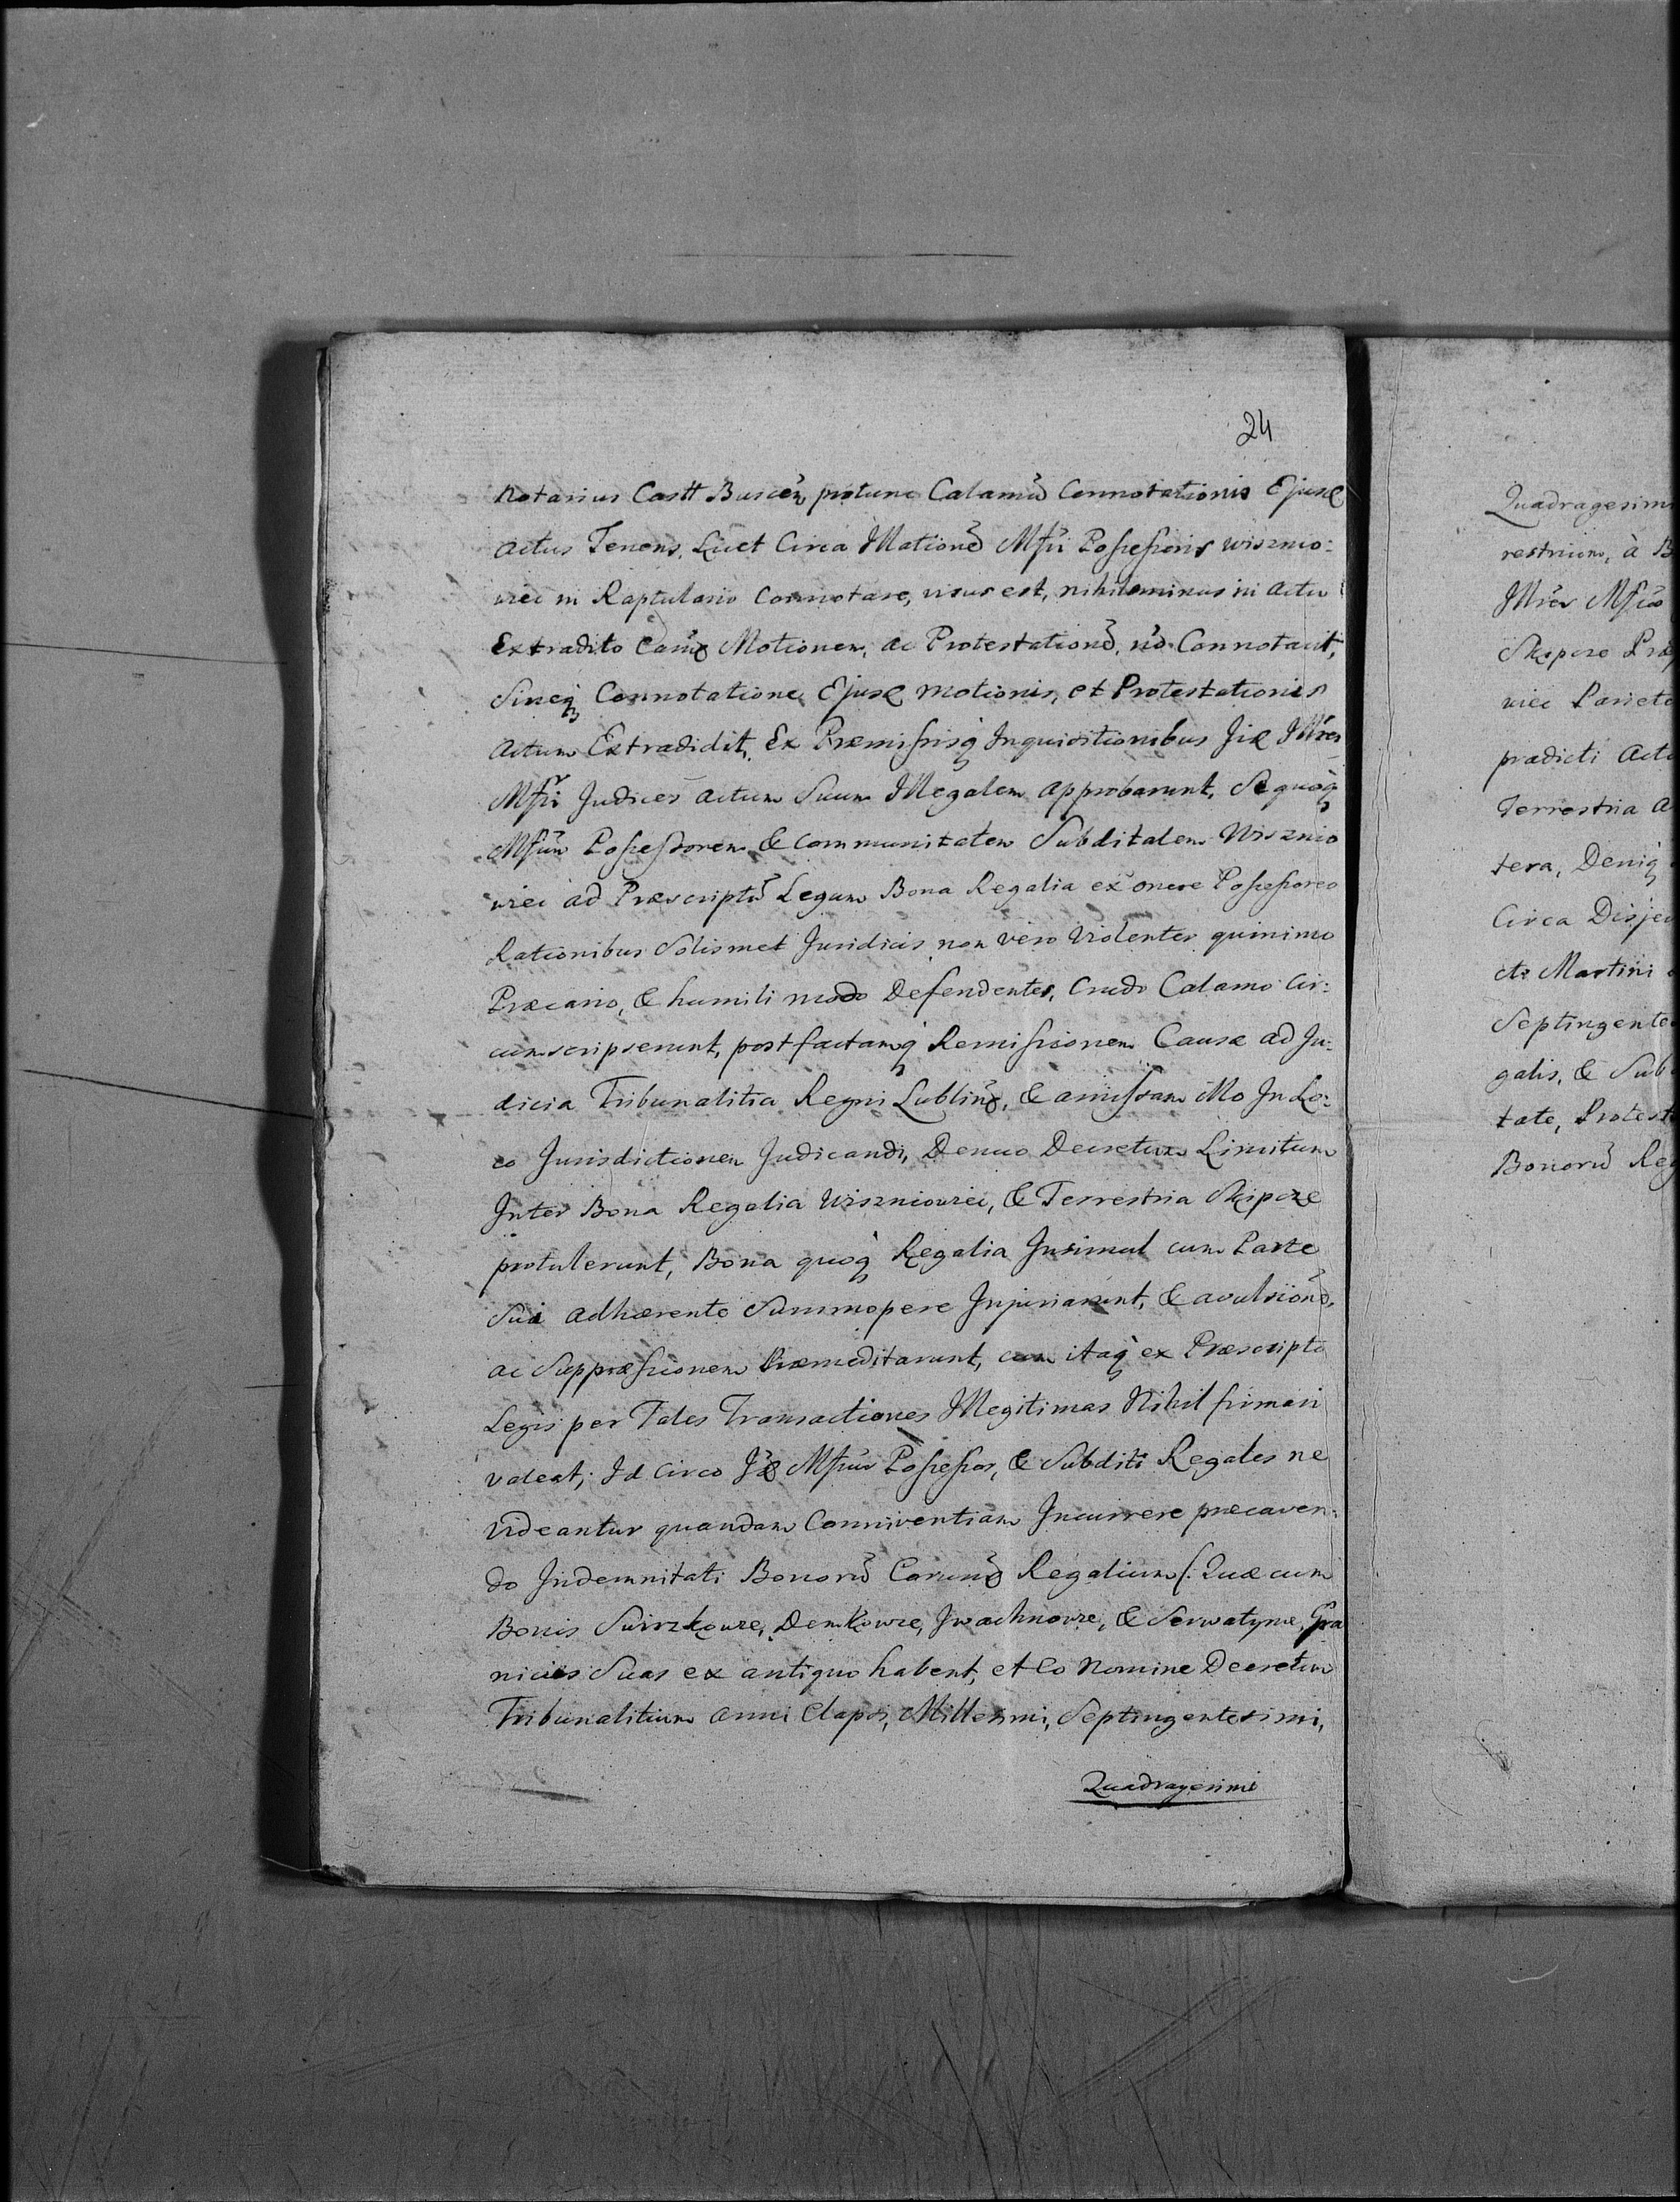 24
Notarius Castt Buscen̄, protunc Calamū Connotationis Ejusd
Actus Tenens, Licet Circa Mationē Mfci Possessoris Wisznio:
wiec in Raptulario Connotare, visus est, nihilominus in Actu
Extradito Eand Motionem, ac Protestationē, nō Connotavit,
Sineq Connotatione Ejusd motionis, et Protestationis
Actum Extradidit, Ex Præmissisq Inquisitionibus Jid Illres
Mfci Judices actum Suum Illegalem approbarunt, Sequoq
Mfcum Possessorem & Communitatem Subditalem Wisznio
wiec ad Præscriptū Legum Bona Regalia ex onere Possessoreo
Rationibus Solismet Juridicis non vero Violenter quinimo
Præcario, & humili modo Defendentes, Crudo Calamo Cir:
cumscripserunt, post factamq Remissionem Causæ ad Ju:
dicia Tribunalitia Regni Lublinē, & amissam illo In Lo:
co Jurisdictionem Judicandi, Denuo Decretum Limitum
Inter Bona Regalia Wiszniowiec, & Terrestria Skipcze
protulerunt, Bona quoq Regalia Insimul cum Parte
Sua adhærente Summopere Injuriarunt, & avulsionē,
ac Suppressionem Præmeditarunt, cum itaq ex Præscripto
Legis per Tales Transactiones Illegitimas Nihil firmari
valeat, Id Circo Jd Mfcus Possessor, & Subditi Regales ne
Videantur quandam Conniventiam Incurrere præcaven:
do Indemnitati Bonorū Earund Regalium (: Quæ cum
Bonis Swirzkowce, Demkowce, Iwachnowce, & Serwatynce, Gra
nicies Suas ex antiquo habent, et Eo Nomine Decretum
Tribunalitium Anni Elapsi, Millesimi, Septingentesimi,
Quadragesimi
Quadragesimi
restrium, à B
Illres Mfcos
Skipcze Præ
wiec Pariete
prædicti Actu
Terrestria A
tera, Deniq
Circa Disje
cti Martini
Septingente
galis, & Sub
tate, Protest
Bonorū Reg